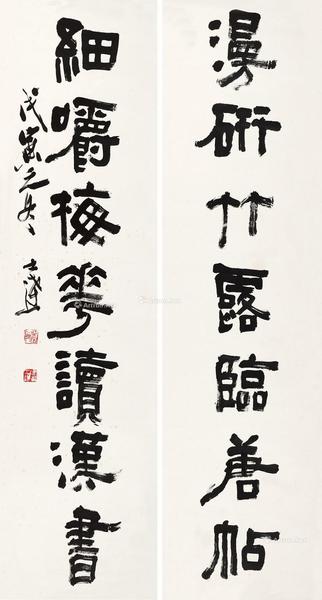 漫研竹露臨善帖
細嚼梅花讀漢書
戊寅之冬